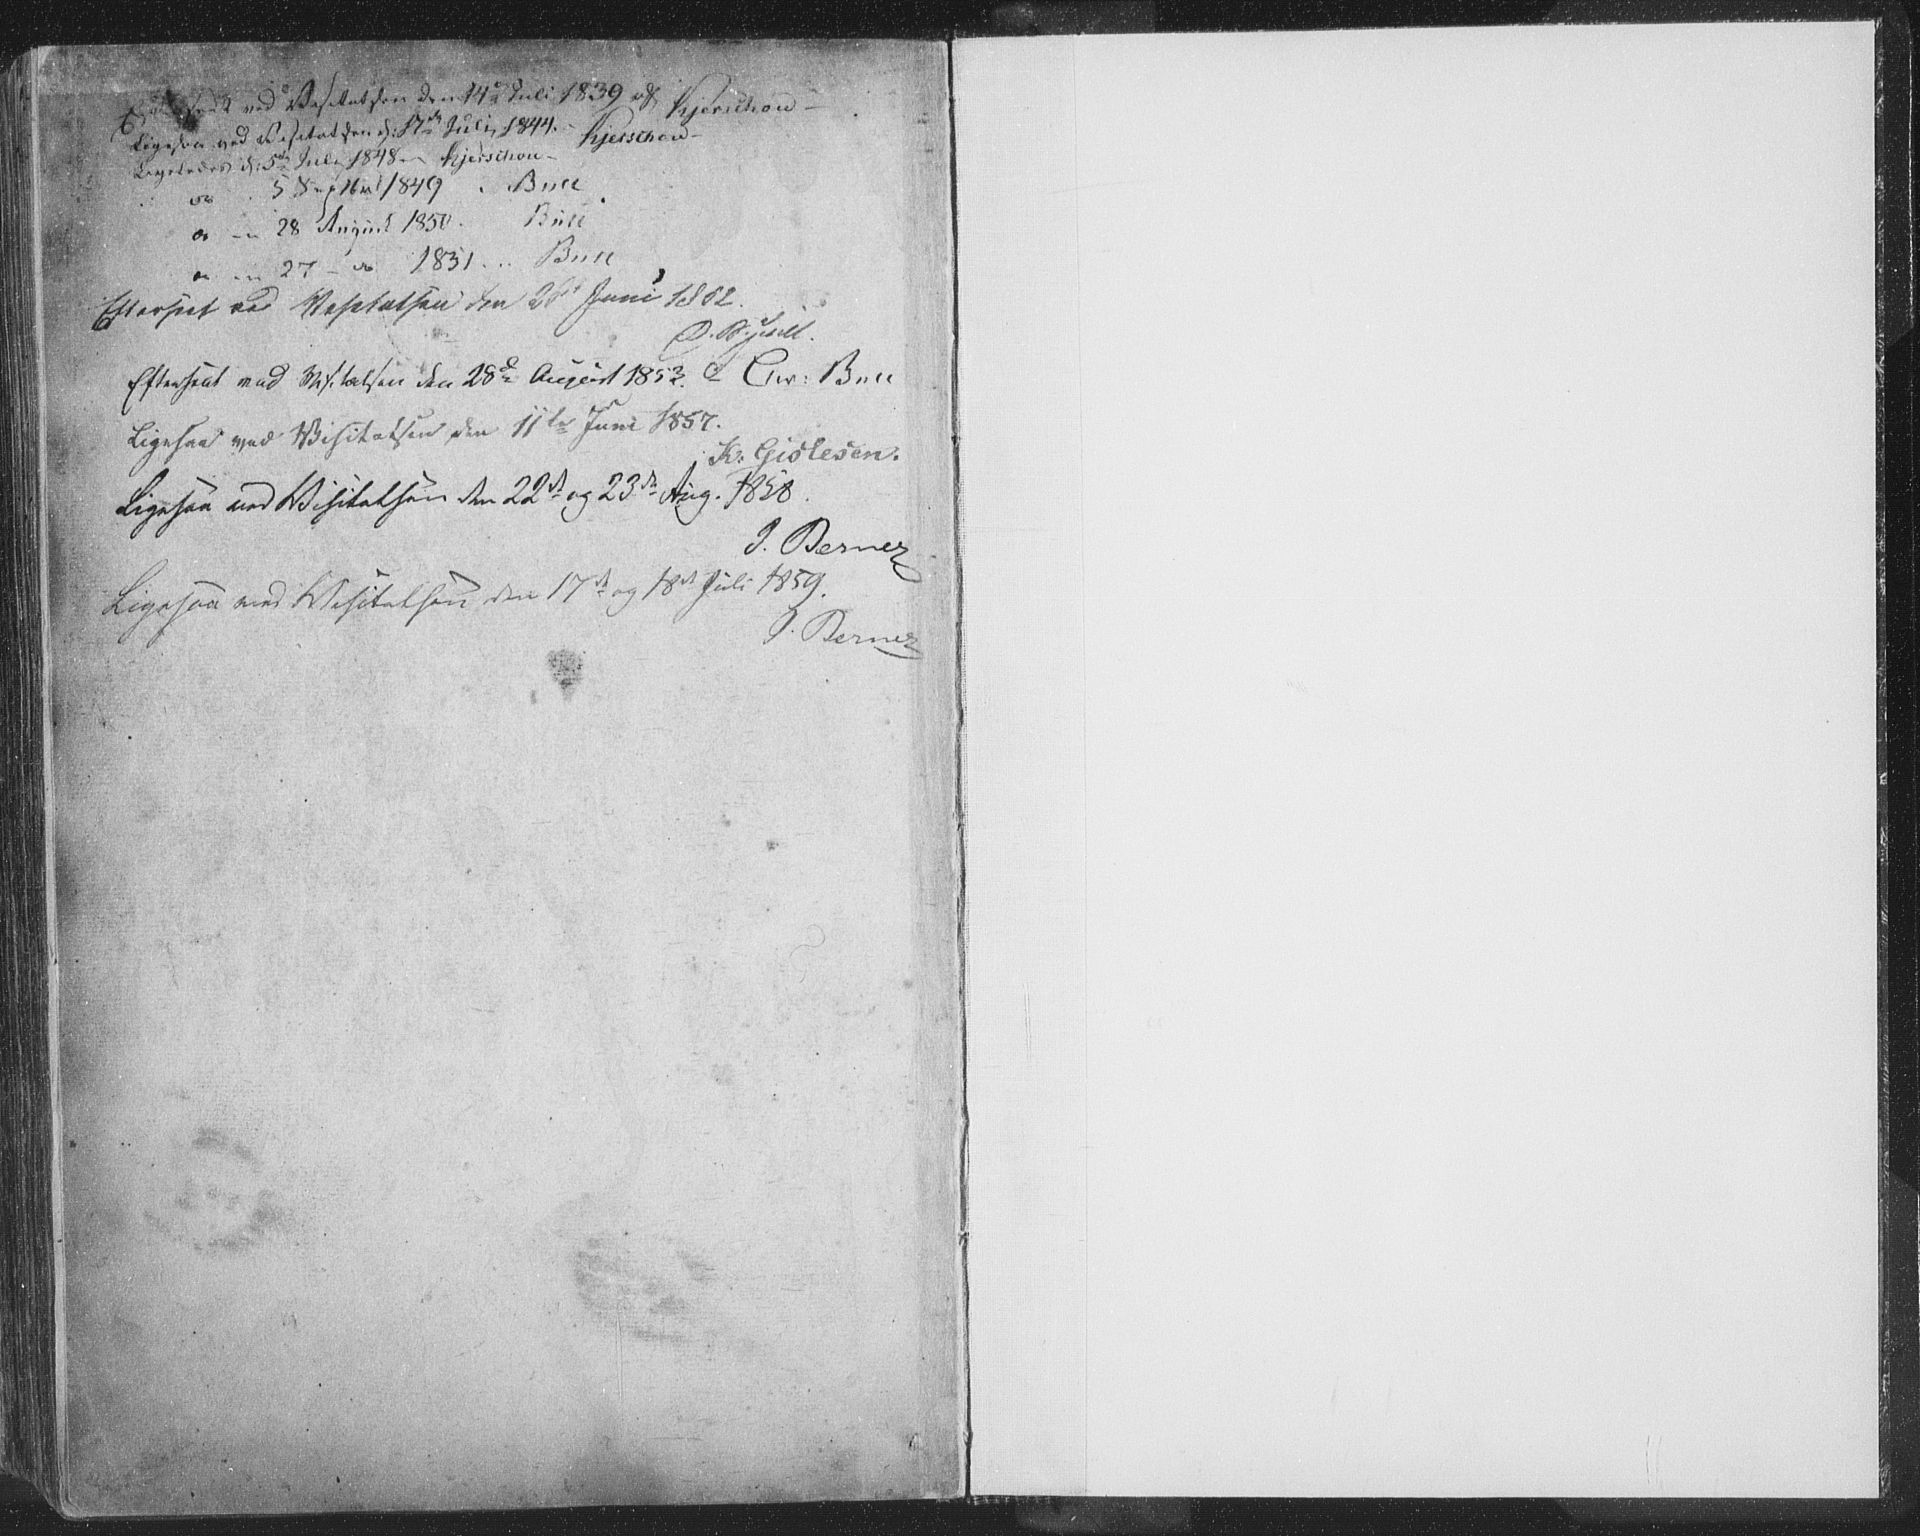 Efterseet ved Visitatsen den 14de Juli 1839 af Kjerschow
Ligesaa ved Visitatsen d: 17de Juli 1844. Kjerschow
Ligeledes d: 5te Juli 1848 Kjerschow
do 5 Septbr 1849 Buee
do 28 August 1850. Buee
do 27 - do 1851. Buee
Efterseet ved Visitatsen den 28 Juni 1852.
Efterseet ved Visitatsen den 28de August 1853. Chr: Buee
Ligesaa ved Visitatsen den 11te Juni 1857.
K. Gislesen.
Ligesaa ved Visitatsen den 22de og 23de Aug. 1858.
J. Berner
Ligesaa ved Visitatsen den 17de og 18de Juli 1859.
J. Berner